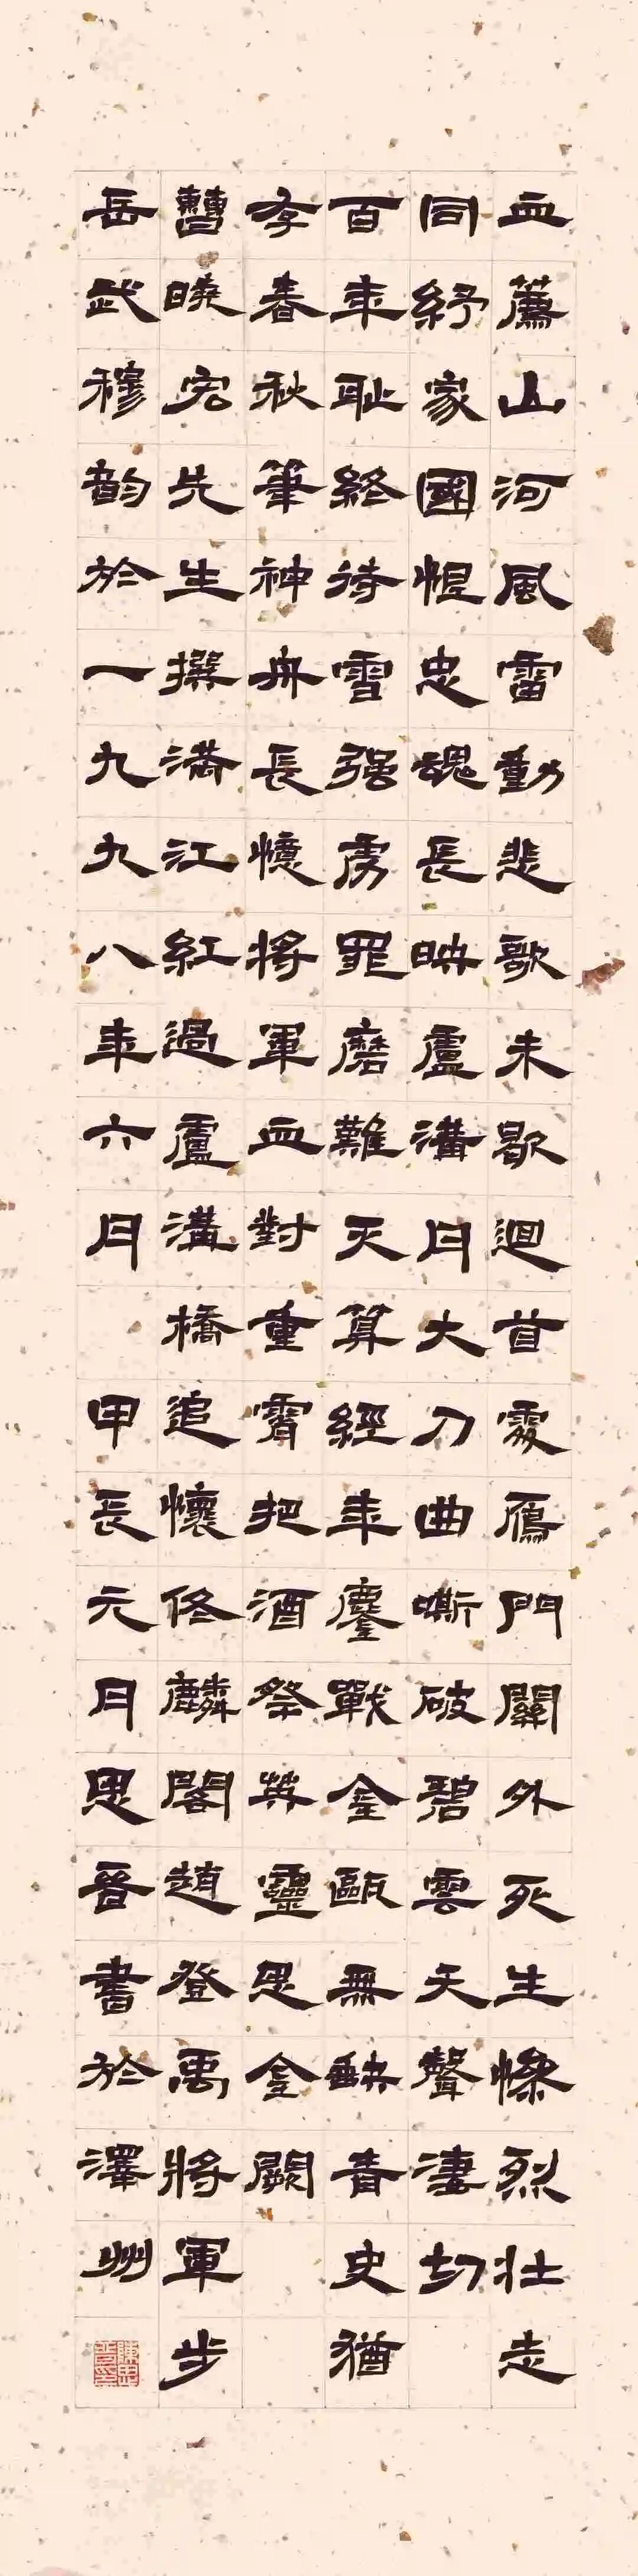 血薦山河風雷動悲歌未歇迴首處雁門關外死生慘烈壯志
同紓家國恨忠魂長映盧溝月大刀曲嘶破碧雲天聲淒切
百年恥終待雪强虜罪磨難灭算經年鏖戰金甌無缺青史猶
存春秋筆神舟長憶將軍血對重霄把酒祭英靈思金闕
曹曉宏先生撰滿江紅過盧溝橋追懷佟麟閣趙登禹將軍步
岳武穆韵於一九九八年六月 甲辰元月思晉書於澤州